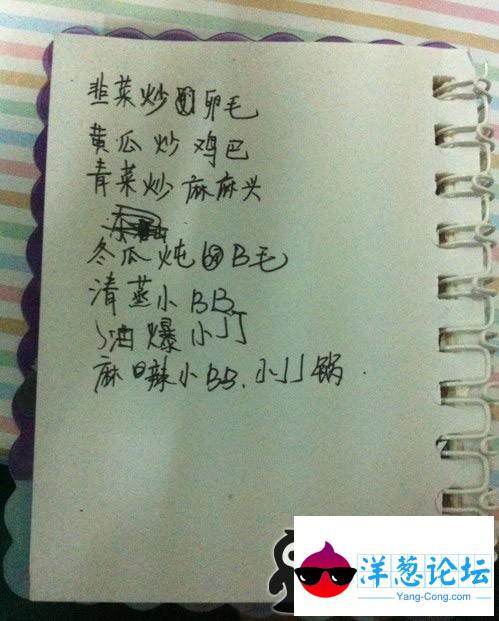 韭菜炒卵毛
黄瓜炒鸡巴
青菜炒麻麻头
冬瓜炖B毛
清蒸小BB
油爆小JJ
麻辣小BB.小JJ锅.
洋葱论坛
Yang-Cong.com